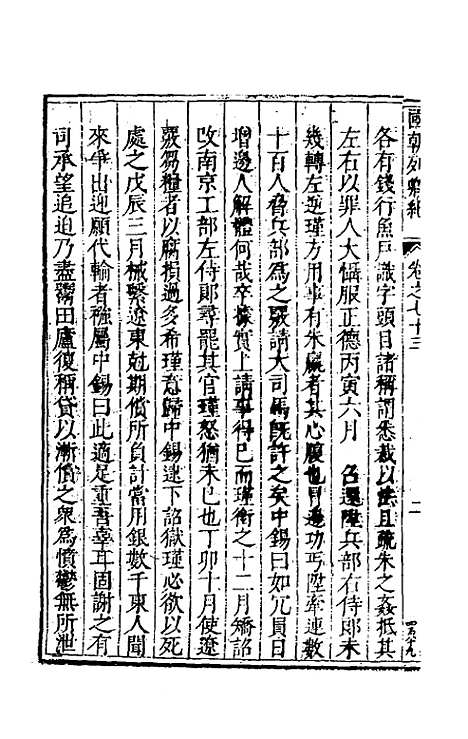 國朝列卿紀 卷之七十三 二
各有錢行魚戶識字頭目諸稱謂悉裁以法且疏朱之姦抵其
左右以罪人大懾服正德丙寅六月 召還陞兵部右侍郎未
幾轉左逆瑾方用事有朱瀛者其心腹也冒邊功丐陞率連數
十百人脅兵部為之覈請大司馬既許之矣中錫曰如冗員日
增邊人解體何哉卒據實上請事得已而瑾銜之十二月矯詔
改南京工部左侍郎尋罷其官瑾怒猶未已也丁卯十月使遼
覈芻糧者以腐損過多希瑾意歸中錫逮下詔獄瑾必欲以死
處之戊辰三月械繫遼東尅期償所負計當用銀數千東人聞
來爭出迎願代輸者襁屬中錫曰此適足重吾辜耳固謝之有
司承望追迫乃盡鬻田廬復稱貸以漸償之衆為憤鬱無所泄